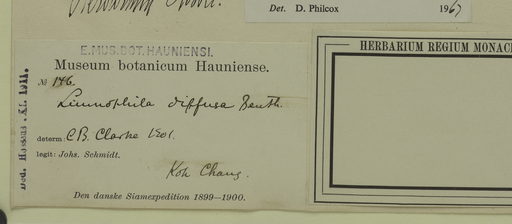 Det. D. Philcox 1967
E.MUS.BOT.HAUNIENSI.
Museum botanicum Hauniense.
№ 146.
Limnophila diffusa Benth.
determ. C.B. Clarke 1901.
legit: Johs. Schmidt.
Koh Chang.
Den danske Siamexpedition 1899—1900.
HERBARIUM REGIUM MONAC